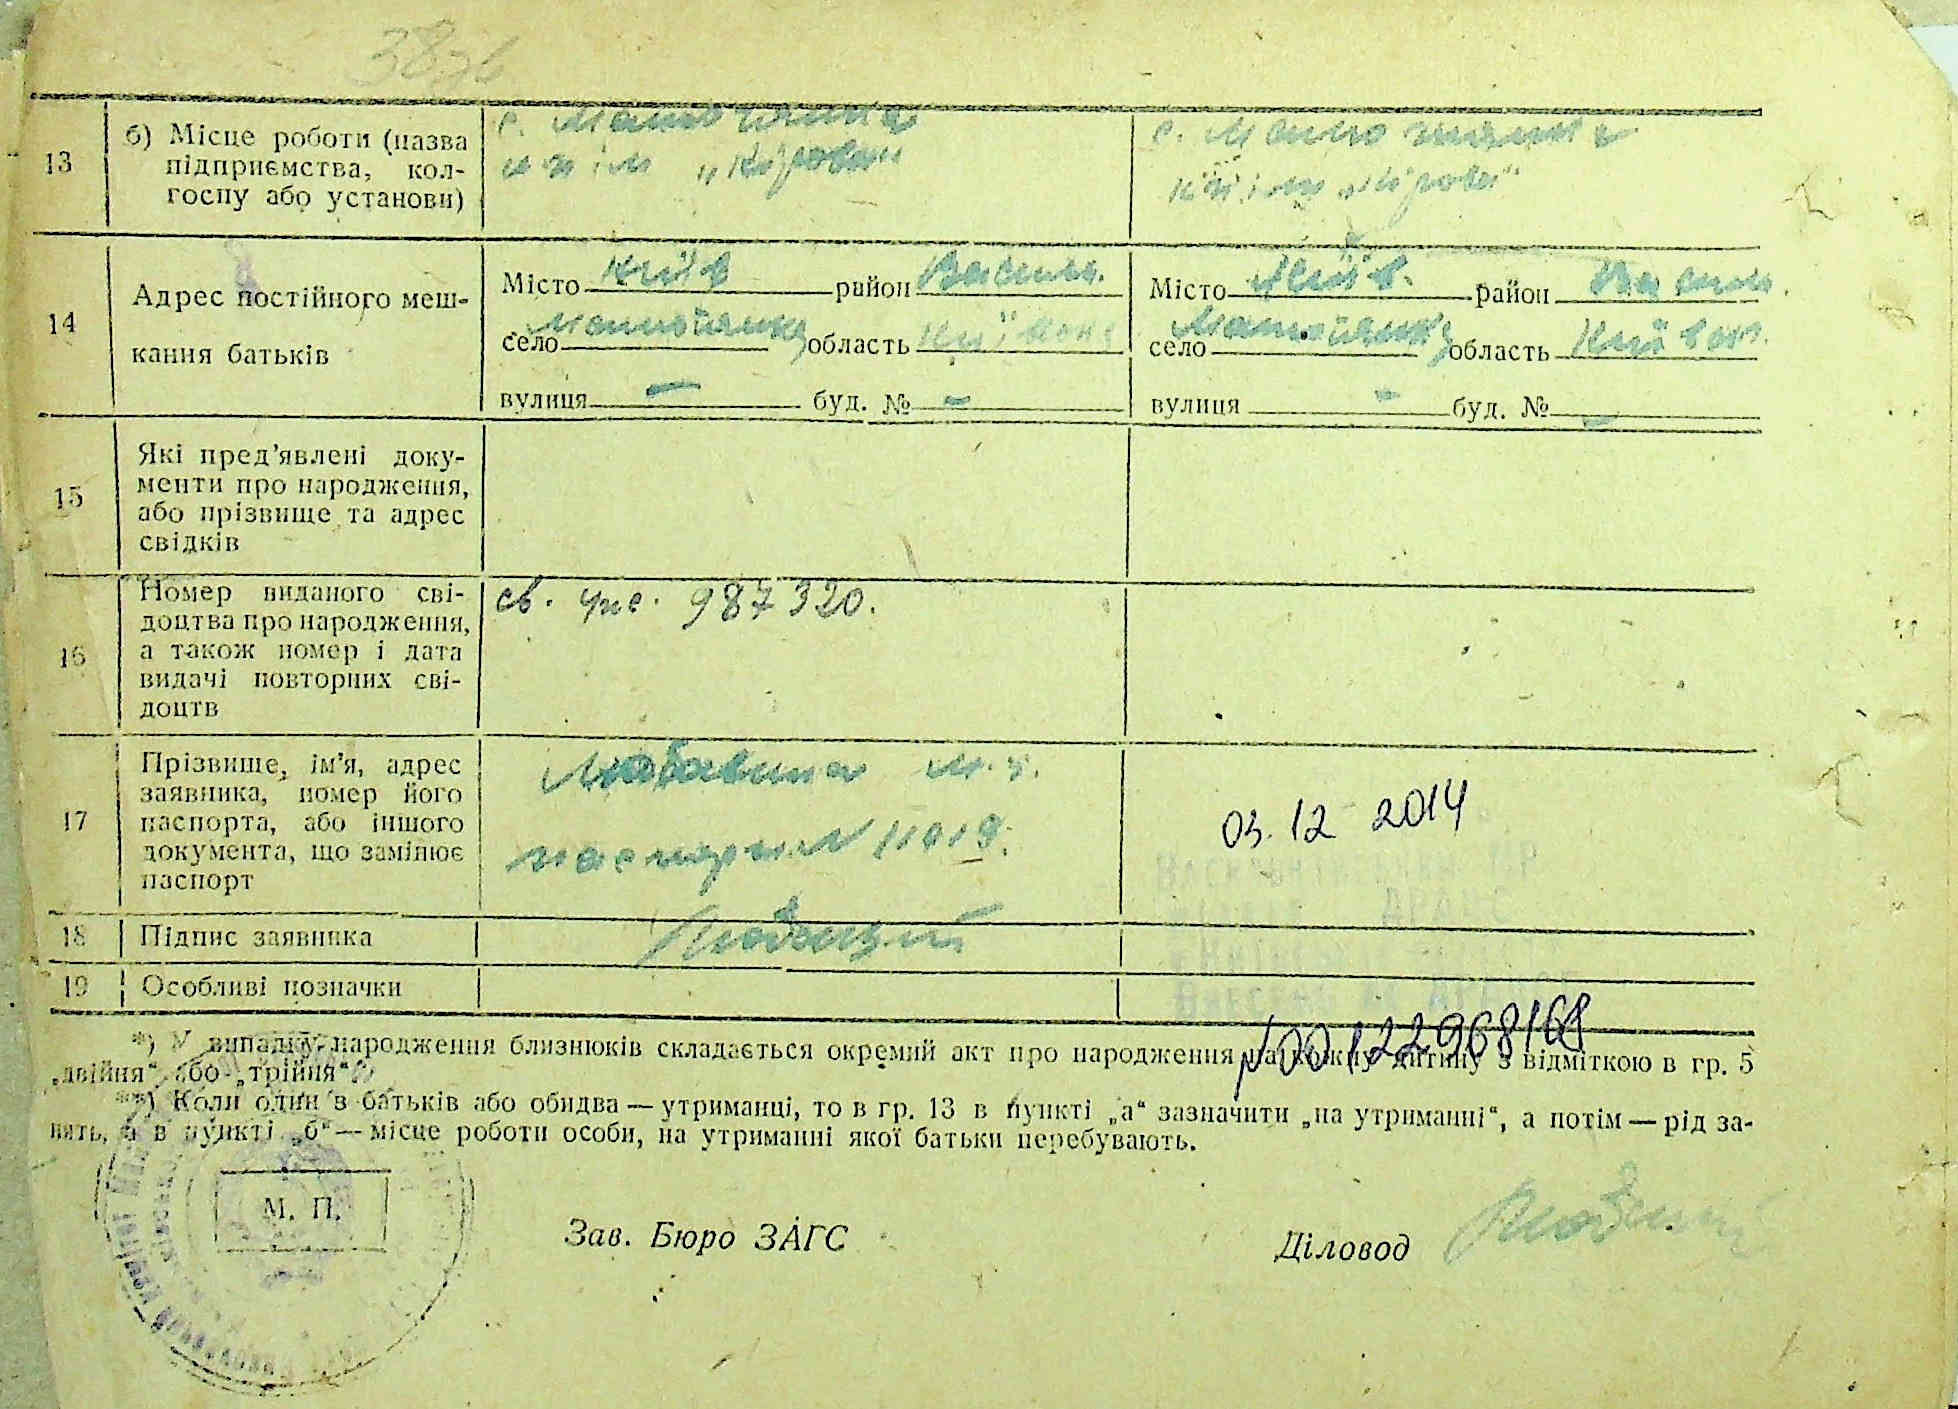 13
б) Місце роботи (назва
підприємства, кол-
госпу або установи)
с.
„Кірова“
с.
„Кірова“
14
Адрес постійного меш-
кання батьків
Місто Київ район Васильк.
село область Київськ
вулиця — буд. № -
Місто Київ. район Васильк.
село область Київськ.
вулиця - буд. № -
15
Які пред’явлені доку-
менти про народження,
або прізвище та адрес
свідків
16
Номер виданого сві-
доцтва про народження,
а також номер і дата
видачі повторних сві-
доцтв
св. 987320.
17
Прізвище, ім’я, адрес
заявника, номер його
паспорта, або іншого
документа, що замінює
паспорт
паспорт N
03.12 2014
18
Підпис заявника
19
Особливі позначки
N00122968168
*) У випадку народження близнюків складається окремий акт про народження на кожну дитину з відміткою в гр. 5
„двійня“ або „трійня“
**) Коли один з батьків або обидва — утриманці, то в гр. 13 в пункті „а“ зазначити „на утриманні“, а потім — рід за-
нять, а в пункті „б“ — місце роботи особи, на утриманні якої батьки перебувають.
М. П.
Зав. Бюро ЗАГС
Діловод